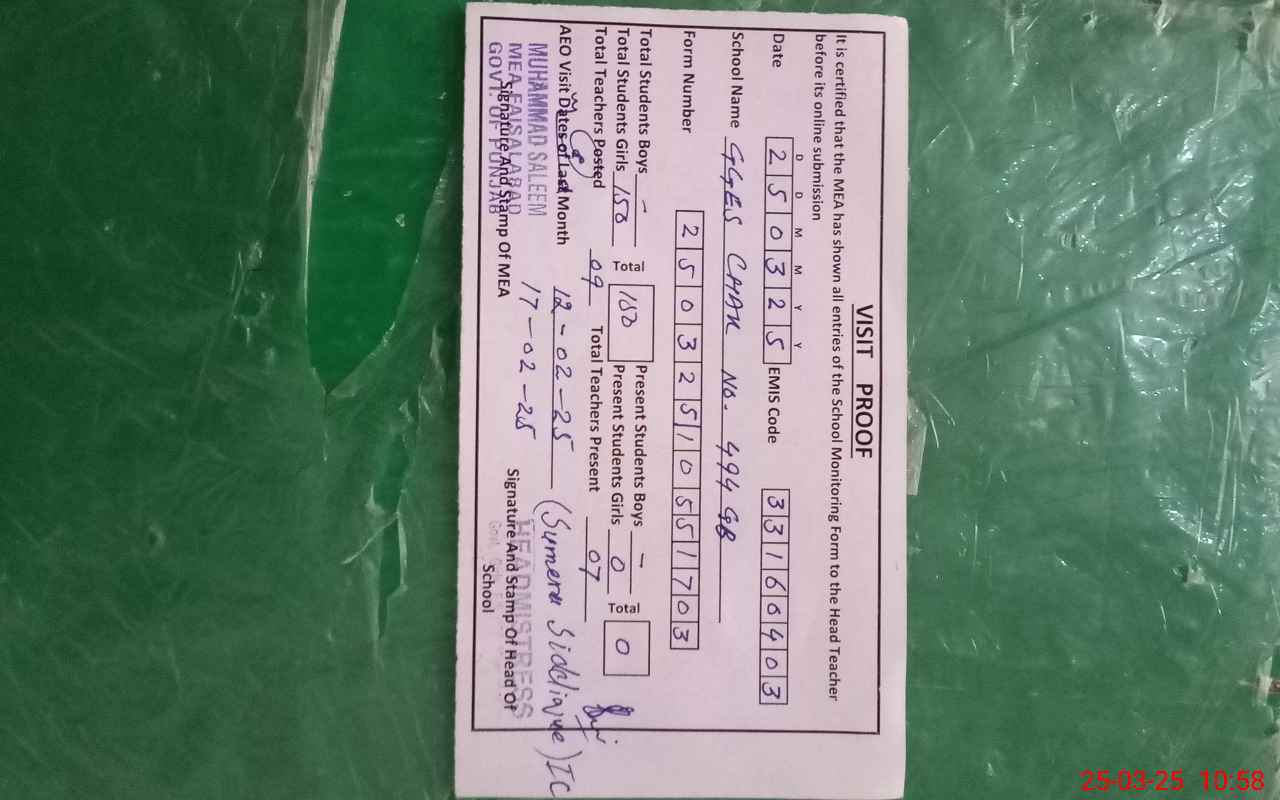 VISIT PROOF
It is certified that the MEA has shown all entries of the School Monitoring Form to the Head Teacher
before its online submission
D D M M Y Y
Date 2 5 0 3 2 5 EMIS Code 3 3 1 6 0 4 0 3
School Name GGES CHAK No. 494 GB
Form Number 2 5 0 3 2 5 1 0 5 5 1 7 0 3
Total Students Boys - Present Students Boys -
Total Students Girls 150 Total 150 Present Students Girls 0 Total 0
Total Teachers Posted 09 Total Teachers Present 07
AEO Visit Dates of Last Month 12-02-25
17-02-25
(Sumera Siddique) IC
MUHAMMAD SALEEM
MEA FAISALABAD
GOVT. OF PUNJAB
Signature And Stamp Of MEA
HEADMISTRESS
Signature And Stamp Of Head Of
School
25-03-25 10:58